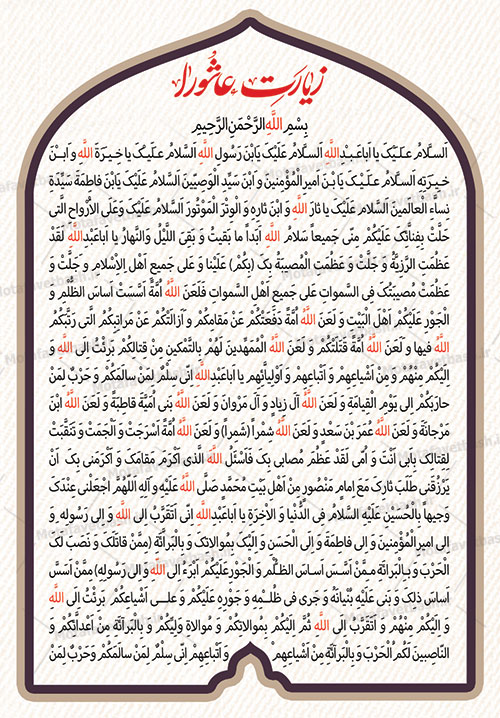 زیارت عاشورا
بِسْمِ اللَّهِ الرَّحْمَنِ الرَّحِیمِ
اَلسَّلامُ عَلَیْکَ یا اَباعَبْدِاللَّهِ اَلسَّلامُ عَلَیْکَ یَابْنَ رَسُولِ اللَّهِ اَلسَّلامُ عَلَیْکَ یا خِیَرَةَ اللَّهِ و ابْنَ
خِیَرَتِهِ اَلسَّلامُ عَلَیْکَ یَا بْنَ امیرِ المُؤْمِنینَ و ابْنَ سَیِّدِ الْوَصِیّینَ اَلسَّلامُ عَلَیْکَ یَابْنَ فاطِمَةَ سَیِّدَةِ
نِساَّءِ الْعالَمینَ اَلسَّلامُ عَلَیْکَ یا ثارَ اللَّهِ وَ ابْنَ ثارِهِ وَ الْوِتْرَ الْمَوْتُورَ اَلسَّلامُ عَلَیْکَ وَعَلَی الاَْرْواحِ الَّتی
حَلَّتْ بِفِنائِکَ عَلَیْکُمْ مِنّی جَمیعاً سَلامُ اللَّهِ اَبَداً ما بَقیتُ وَ بَقِیَ اللَّیْلُ وَالنَّهارُ یا اَباعَبْدِاللَّهِ لَقَدْ
عَظُمَتِ الرَّزِیَّةُ وَ جَلَّتْ وَ عَظُمَتِ الْمُصیبَةُ بِکَ (بِکُمْ) عَلَیْنا وَ عَلی جَمیعِ اَهْلِ الاِْسْلامِ وَ جَلَّتْ وَ
عَظُمَتْ مُصیبَتُکَ فِی السَّمواتِ عَلی جَمیعِ اَهْلِ السَّمواتِ فَلَعَنَ اللَّهُ اُمَّةً اَسَّسَتْ اَساسَ الظُّلْمِ وَ
الْجَوْرِ عَلَیْکُمْ اَهْلَ الْبَیْتِ وَ لَعَنَ اللَّهُ اُمَّةً دَفَعَتْکُمْ عَنْ مَقامِکُمْ وَ اَزالَتْکُمْ عَنْ مَراتِبِکُمُ الَّتی رَتَّبَکُمُ
اللَّهُ فیها وَ لَعَنَ اللَّهُ اُمَّةً قَتَلَتْکُمْ وَ لَعَنَ اللَّهُ الْمُمَهِّدینَ لَهُمْ بِالتَّمْکینِ مِنْ قِتالِکُمْ بَرِئْتُ اِلَی اللَّهِ وَ
اِلَیْکُمْ مِنْهُمْ وَ مِنْ اَشْیاعِهِمْ وَ اَتْباعِهِمْ وَ اَوْلِیاَّئِهِم یا اَباعَبْدِاللَّهِ اِنّی سِلْمٌ لِمَنْ سالَمَکُمْ وَ حَرْبٌ لِمَنْ
حارَبَکُمْ اِلی یَوْمِ الْقِیامَةِ وَ لَعَنَ اللَّهُ آلَ زِیادٍ وَ آلَ مَرْوانَ وَ لَعَنَ اللَّهُ بَنی اُمَیَّةَ قاطِبَةً وَ لَعَنَ اللَّهُ ابْنَ
مَرْجانَةَ وَ لَعَنَ اللَّهُ عُمَرَ بْنَ سَعْدٍ وَ لَعَنَ اللَّهُ شِمْراً (شِمْراً) وَ لَعَنَ اللَّهُ اُمَّةً اَسْرَجَتْ وَ اَلْجَمَتْ وَ تَنَقَّبَتْ
لِقِتالِکَ بِاَبی اَنْتَ وَ اُمّی لَقَدْ عَظُمَ مُصابی بِکَ فَاَسْئَلُ اللَّهَ الَّذی اَکْرَمَ مَقامَکَ وَ اَکْرَمَنی بِکَ اَنْ
یَرْزُقَنی طَلَبَ ثارِکَ مَعَ اِمامٍ مَنْصُورٍ مِنْ اَهْلِ بَیْتِ مُحَمَّدٍ صَلَّی اللَّهُ عَلَیْهِ وَ آلِهِ اَللّهُمَّ اجْعَلْنی عِنْدَکَ
وَجیهاً بِالْحُسَیْنِ عَلَیْهِ السَّلامُ فِی الدُّنْیا وَ الاْخِرَةِ یا اَباعَبْدِاللَّهِ اِنّی اَتَقَرَّبُ اِلی اللَّهِ وَ اِلی رَسُولِهِ وَ
اِلی امیرِ الْمُؤْمِنینَ وَ اِلی فاطِمَةَ وَ اِلَی الْحَسَنِ وَ اِلَیْکَ بِمُوالاتِکَ وَ بِالْبَراَّئَةِ (مِمَّنْ قاتَلَکَ وَ نَصَبَ لَکَ
الْحَرْبَ وَ بِالْبَراَّئَةِ مِمَّنْ اَسَّسَ اَساسَ الظُّلْمِ وَ الْجَوْرِعَلَیْکُمْ اَبْرَءُ اِلَی اللّهِ وَ اِلی رَسُولِهِ) مِمَّنْ اَسَسَّ
اَساسَ ذلِکَ وَ بَنی عَلَیْهِ بُنْیانَهُ وَ جَری فی ظُلْمِهِ وَ جَوْرِهِ عَلَیْکُمْ وَ عَلی اَشْیاعِکُمْ بَرِئْتُ اِلَی اللَّهِ
وَ اِلَیْکُمْ مِنْهُمْ وَ اَتَقَرَّبُ اِلَی اللَّهِ ثُمَّ اِلَیْکُمْ بِمُوالاتِکُمْ وَ مُوالاةِ وَلِیِّکُمْ وَ بِالْبَراَّئَةِ مِنْ اَعْداَّئِکُمْ وَ
النّاصِبینَ لَکُمُ الْحَرْبَ وَ بِالْبَراَّئَةِ مِنْ اَشْیاعِهِمْ وَ اَتْباعِهِمْ اِنّی سِلْمٌ لِمَنْ سالَمَکُمْ وَ حَرْبٌ لِمَنْ